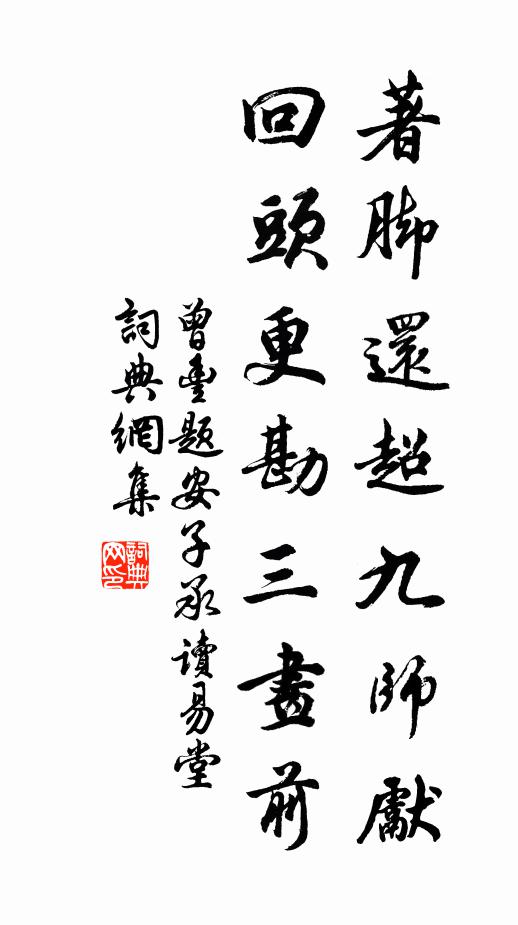 著脚還超九師獻
回頭更勘三畫前
曾豐題安子承讀易堂
詞典網集
詞典网印